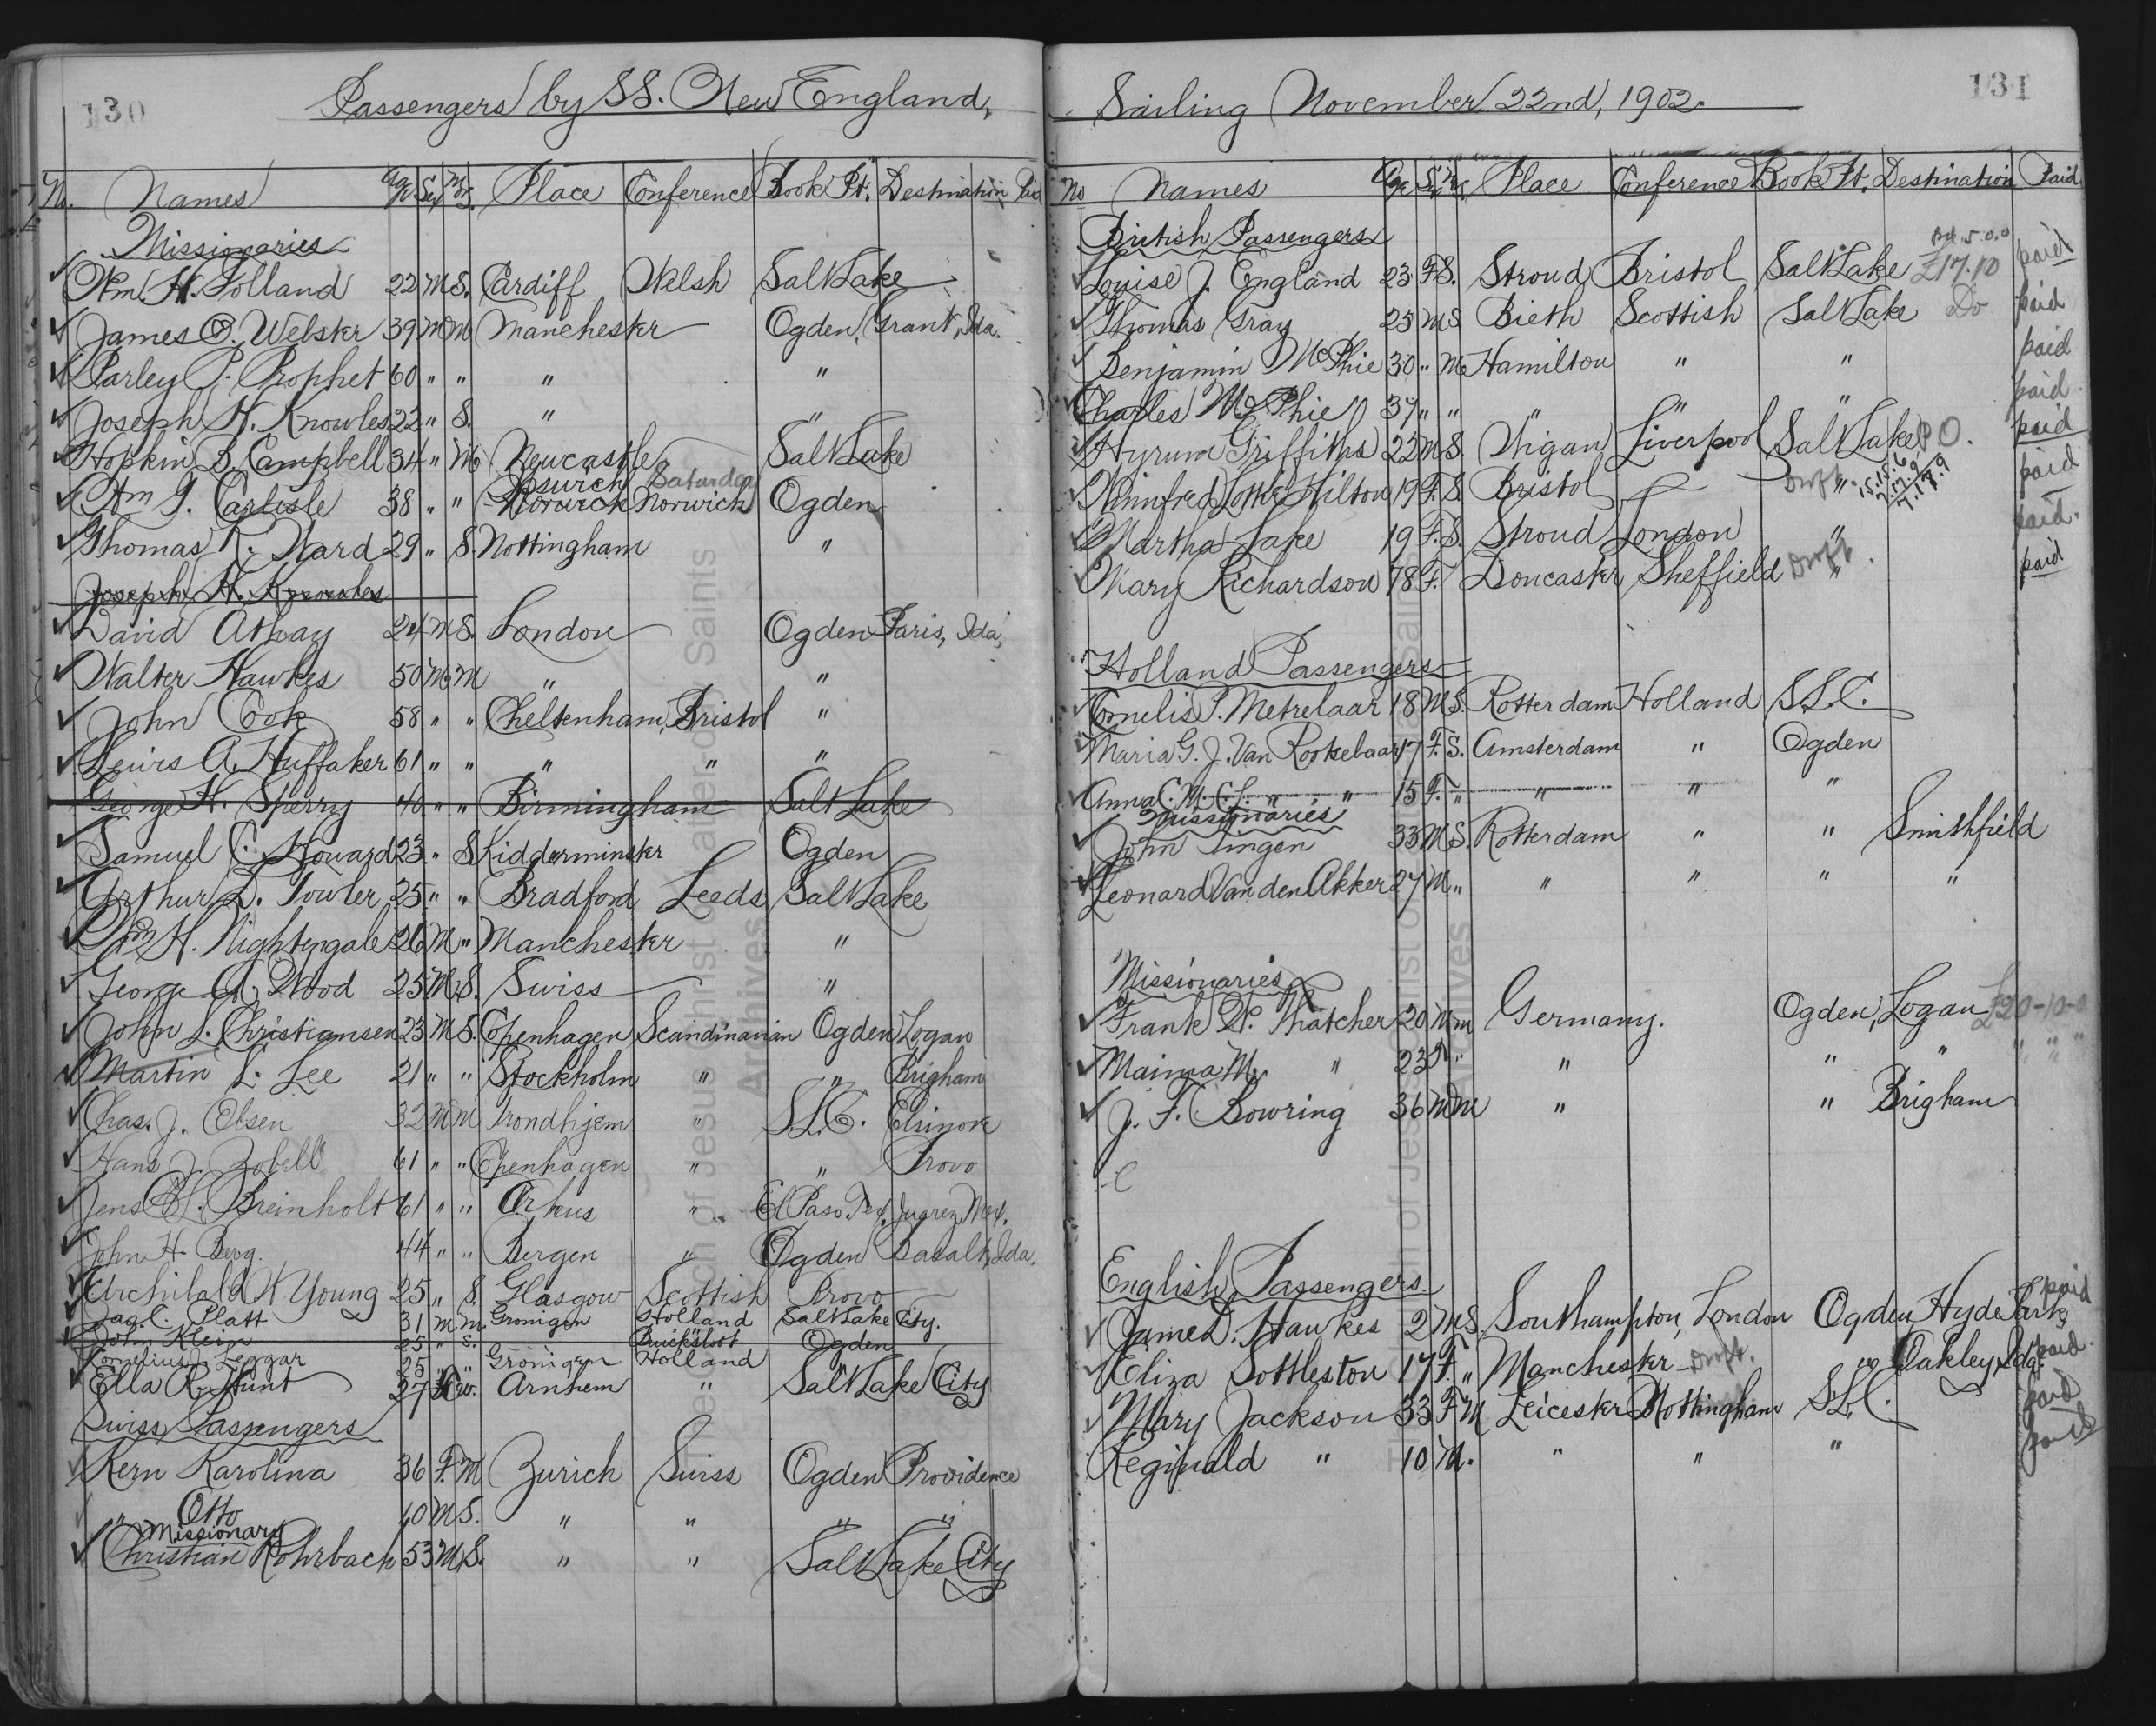 130
Passengers by SS. New England,
No. Names Age Sex M or S. Place Conference Book Pt. Destination Paid
Missionaries
Wm. H. Folland 22 M S. Cardiff Welsh Salt Lake
James P. Webster 39 M M Manchester Ogden, Grant, Ida.
Parley P. Prophet 60 " " " "
Joseph H. Knowles 22 " S. " "
Hopkin B. Campbell 34 " M Newcastle Salt Lake
Ipswich Saturday
Wm J. Carlisle 38 " " Norwich Norwich Ogden
Thomas R. Ward 29 " S. Nottingham "
Joseph H. Knowles
David Athay 24 M S. London Ogden Paris, Ida,
Walter Hawkes 50 M M " "
John Cook 58 " " Cheltenham, Bristol "
Lewis A. Huffaker 61 " " " " "
George H. Sperry 40 " " Birmingham Salt Lake
Samuel C. Howard 23 " S Kidderminster Ogden
Arthur D. Fowler 25 " " Bradford Leeds Salt Lake
Wm H. Nightengale 26 M " Manchester "
George A. Wood 25 M S. Swiss "
John L. Christiansen 23 M S. Copenhagen Scandinavian Ogden Logan
Martin L. Lee 21 " " Stockholm " " Brigham
Chas. J. Olsen 32 M M Trondhjem " S.L.C. Elsinore
Hans J. Zobell 61 " " Copenhagen " " Provo
Jens C. L. Breinholt 61 " " Arhus " El Paso Tex. Juarez Mex.
John H. Berg. 44 " " Bergen " Ogden Basalt, Ida.
Archibald N Young 25 " S. Glasgow Scottish Provo
Jas. C. Platt 31 m m. Gronigen Holland Salt Lake City.
John Klein 25 " s. Ogden
Cornelius J. Leggar 25 " " Gronigen Holland
Ella R. Hunt 27 w. Arnhem " Salt Lake City
Swiss Passengers
Kern Karolina 36 F. M Zurich Swiss Ogden Providence
" Otto 10 M S. " " " "
Missionary
Christian Rohrbach 53 M S. " " Salt Lake City
131
Sailing November 22nd, 1902.
No Names Age Sx M.S. Place Conference Book Pt. Destination Paid
British Passengers
Louise J. England 23 F S. Stroud Bristol Salt Lake £17.10 paid
Thomas Gray 25 M S. Bieth Scottish Salt Lake Do paid
Benjamin McPhie 30 " M Hamilton " " paid
Charles McPhie 37 " " " " " paid
Hyrum Griffiths 22 M S. Wigan Liverpool Salt Lake P.O. paid
Winnifred Lottie Hilton 19 F. S. Bristol Drft. " 15.15.6 7.17.9 7.17.9 paid
Martha Lake 19 F. S. Stroud London " paid.
Mary Richardson 78 F. Doncaster Sheffield Drft. " paid
Holland Passengers
Cornelis P. Metselaar 18 M S. Rotterdam Holland S.L.C.
Maria G. J. Van Rooselaar 17 F. S. Amsterdam " Ogden
Anna C. M. C. L. " " 15 F. " " " "
Missionaries
John Tingen 33 M S. Rotterdam " " Smithfield
Leonard Van den Akker 27 M " " " " "
Missionaries
Frank W. Thatcher 20 M m Germany. Ogden, Logan £20-10-0
Maima M. " 23 F " " " " " " "
J. F. Bowring 36 M m " " Brigham
English Passengers.
James D. Hawkes 2 M S. Southampton, London Ogden Hyde Park, paid
Eliza Sottleston 17 F. " Manchester Drft. " Oakley, Ida. paid.
Mary Jackson 33 F M Leicester Nottingham S.L.C. paid
Reginald " 10 M. " " " paid